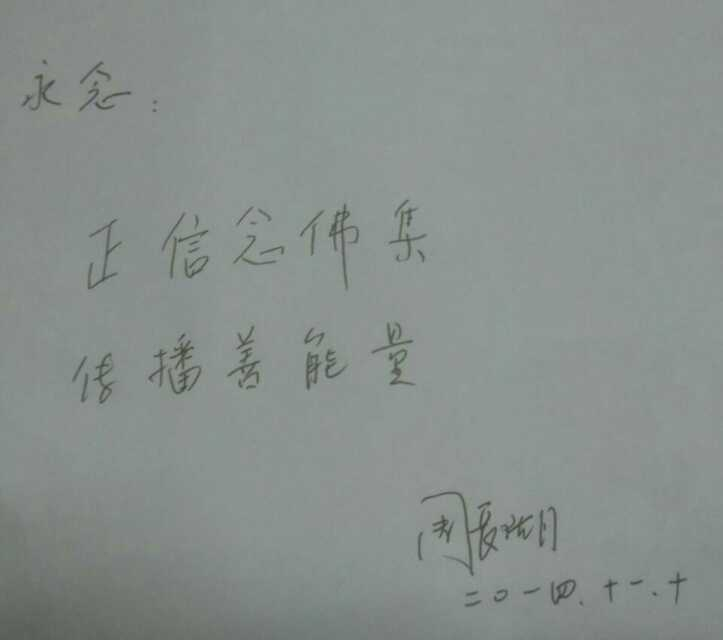 永念:
正信念佛集
传播善能量
周长湖
二〇一四.十一.十